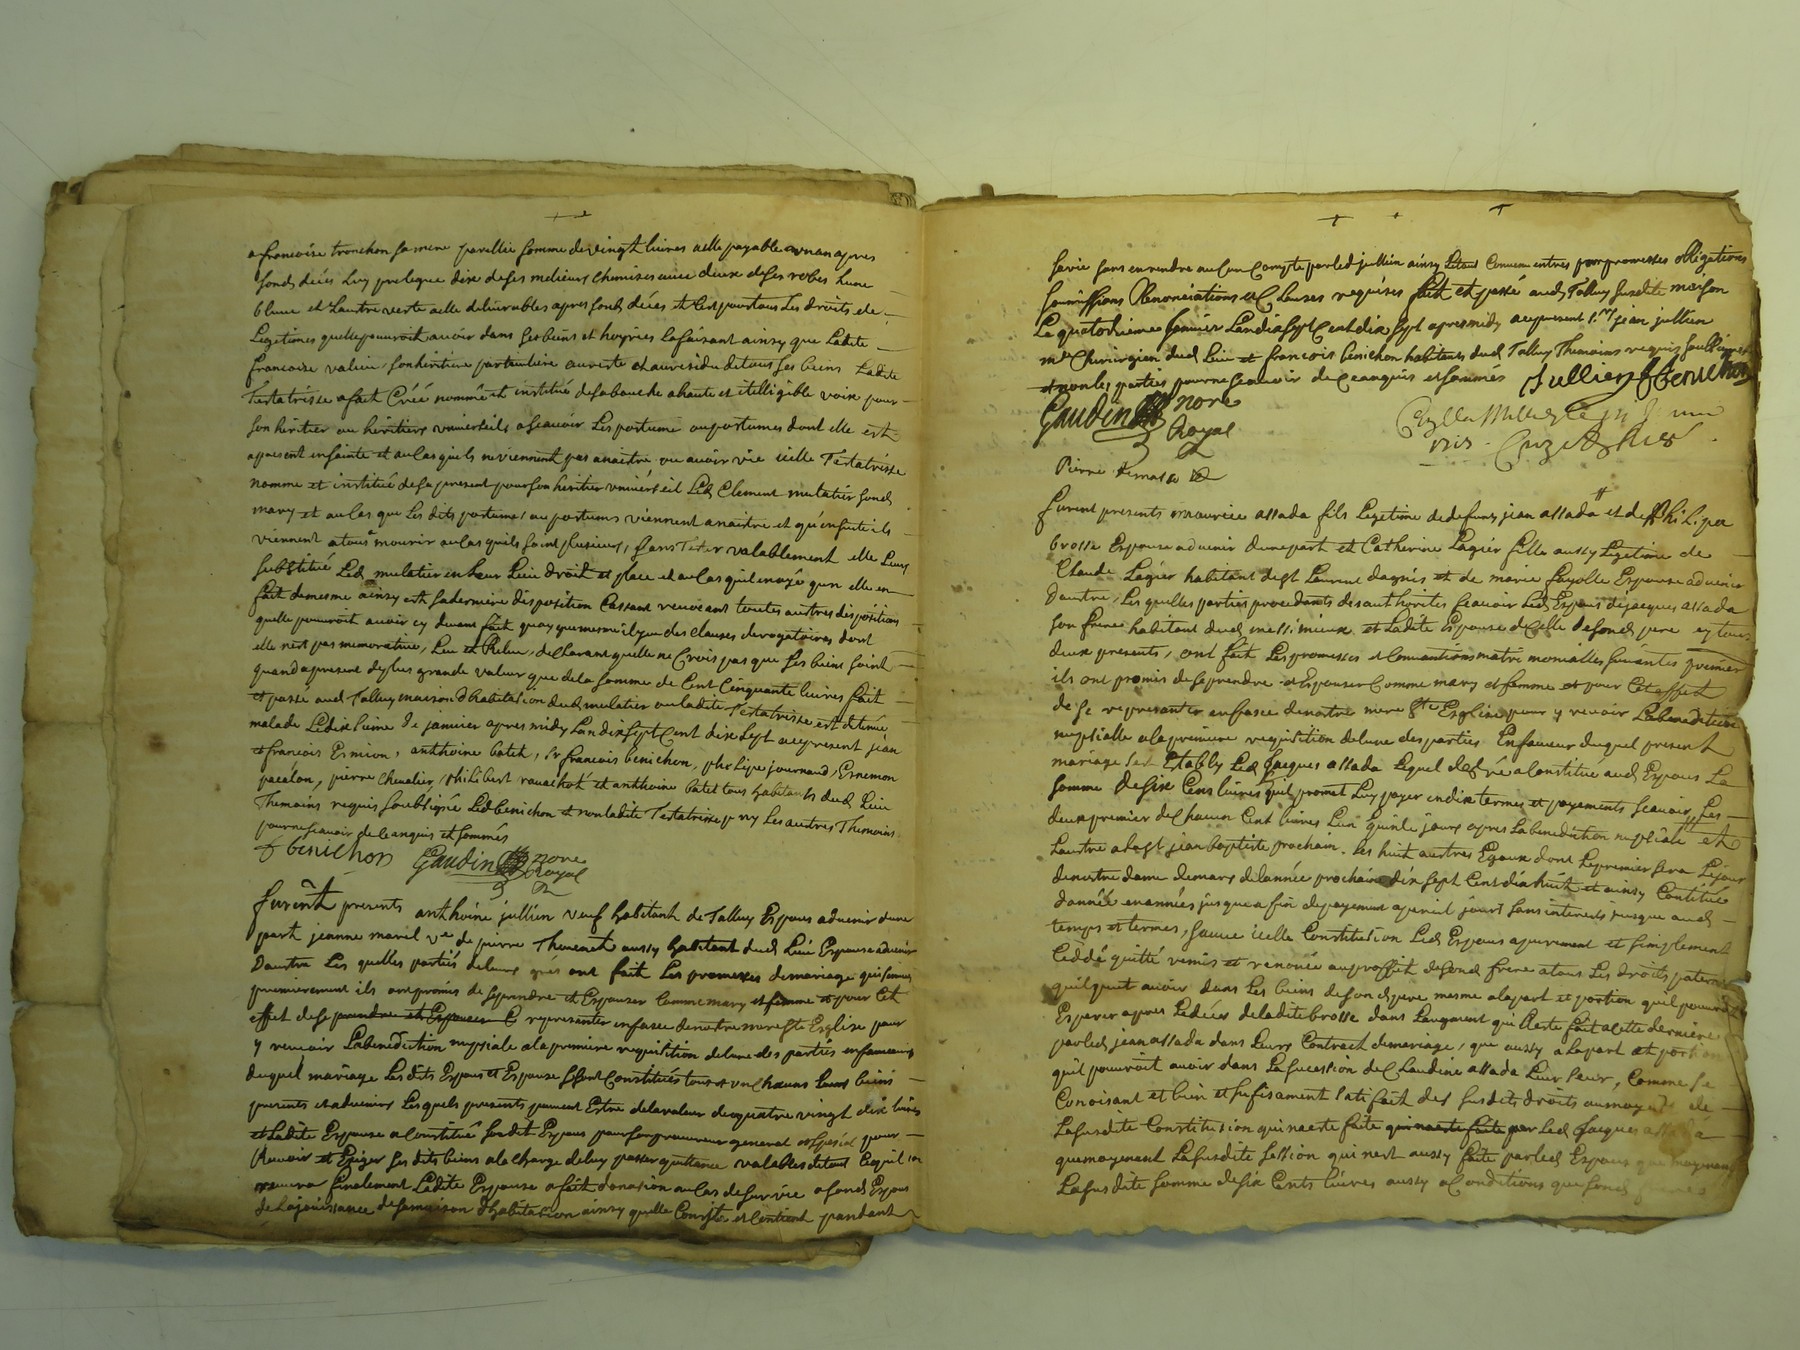 a francoise tronchon sa mere pareillie somme de vingt livres a elle payable un an apres
sond deces luy prelegue dixe de ses melieurs chemises avec deux de ses robes lune
bleuve et lautre verte a elle delivrables apres sond deces et ce pour tous les droits de
Legitimes quelle pouvroit avoir dans ses biens et hoyries la faisant ainsy que Ladite
francoise son heritiere particuliere au reste et au residu de tous ses biens Ladite
Testatrisse a fait Créé nommé et institué de sa bouche a haute et itelligible voix pour
son heritier ou heritiers universeils a scavoir Les postume ou postumes dont elle est
apresent enfainte et au cas quils ne viennent pas anaistre ou avoir vie icelle Testatrisse
nomme et institué desapresent pour son heritier universeil Led Clement mulatier sond
mary et au cas que Les dits postume, ou postums viennent anaistre et qu'ensuite ils
viennent a tous mourir au cas quils soint plusieurs, sans Tester valablement elle Leurs
substitué Led mulatier en Leur Lieu droit et place et au cas quil en aye qun elle en
fait de mesme ainsy est sa derniere disposition Cassant revocant toutes autres dispositions
quelle pouvroit avoir cy devant fait quoy que mesme il y eu des clauses derogatoires dont
elle nest pas memorative, Leu et Releu, declarant quelle ne Crois pas que ses biens soint
quand apresent de plus grande valeur que de la somme de Cent Cinquante livres fait
et passé aud Talluy maison d'habitation dud mulatier ou ladite Testatrisse est detenue
malade Le dixe de janvier apres midy Lan dix sept Cent dix sept a cepresent jean
et francois Ermion, anthoine batet, sr francois benichon, phelipe journoud, Ennemon
pacalon, pierre Chevalier, philibert ravachot et anthoine batet tous habitants dud Lieu
Themoins requis soubsigné Led benichon et non ladite Testatrisse ny Les autres Themoins
pour ne scavoir de ce anquis et sommés
f benichon Gaudin nore
Royal
furent presents anthoine jullien veuf habitant de Talluy Espous advenir dune
part jeanne maril ve de pierre Thevenet aussy habitant dud Lieu Espouse advenir
Dautre Les quelles partiés de leurs grés ont fait Les promesses de mariage qui suivent
premierement ils ont promis de se prendre et Espouser Comme mary et femme et pour Cet
effet de se prendre et Espouser C representer en face de nostre mere ste Esglise pour
y recevoir La benediction nuptiale a la premiere requisition de lune des partiés en faveur
duquel mariage Les dits Espous et Espouse se sont Constitués tous et un chacuns leurs biens
presents et advenirs Lesquels presents peuvent Estre de la valeur de quatre vingt dix livres
et Ladite Espouse a Constitué sondit Espous pour son procureur general et spesial pour
Recevoir et Exiger ses dits biens a la charge de luy passer quittance valables de tout Ce quil en
recevra finalement Ladite Espouse a fait donasion au Cas de survie a sond Espous
de la jouissance de sa maison d'habitasion ainsy quelle Consiste et Contient pandant
sa vie sans en rendre aucun Compte par led jullien ainsy Letout Convenu entres par promesses obligations
soumissions Renonciations et Clauses requises fait et passé aud Talluy susdite maison
Le quatorzieme janvier Lan dix sept Cent dix sept apres midy acepresent sr jean jullien
me Chirurgien dud Lieu et francois benichon habitants dud Talluy Themoins requis soubsignes
et non les parties pour ne scavoir de Ce anquis et sommés Jullien f benichon
Gaudin nore
Royal
Pierre
furent presents mourice assada fils Legetime de defunt jean assada et de Philipa
brosse Espous advenir dune part et Catherine Lagier fille aussy Legetime de
Claude Lagier habitant de st Laurent dagnis et de marie fayolle Espouse advenir
dautre, Les quelles parties procedants des authorites scavoir Led Espous de jacques assada
son frere habitant dud messimieux et Ladite Espouse de Celle de sond pere cy tous
deux presents, ont fait Les promesses et Conventions matrimonialles suivantes premier
ils ont promis de se prendre et Espouser Comme mary et femme et pour Cet effect
de se representer en face de nostre mere ste Esglise pour y recevoir La benediction
nuptialle a la premiere requisition de lune des parties En faveur duquel present
mariage sest Etably Led jacques assada Lequel de gré a Constitué aud Espous La
somme de six Cens livres quil promet Luy payer en dix termes et payements scavoir Les
deux premier de Chacun Cent livres Lun quinze jours apres La benediction nuptiale et
Lautre a la st jean baptiste prochain. Les huit autres Egaux dont Le premier sera Le jour
de nostre dame de mars de lannée prochaine dix sept Cent dix huit et ainsy Continué
dannéé en années jusque a fin de payement a pareil jour sans interests jusque aud
temps et termes, Led Espous a purement et simplement
Ceddé quitté remis et renoncé au proffit de sond frere a tous Les droits paternels
quil peut avoir dans Les biens de son d pere mesme a la part et portion quil pouvroit
Esperer apres Le deces de la dite brosse dans Laugment qui a esté fait a Cette derniere
par led jean assada dans Leurs Contract de mariage, que aussy a la part et portion
quil pouvroit avoir dans La sucession de Claudine assada Leur seur, Comme se
Conoisant et bien et sufisament satisfait des susdits droits au moyens de
La susdite Constitution qui na esté faite qui na esté faite par Led jacques assada
que moyenant La susdite session qui nest aussy faite par led Espous que moyenant
La susdite somme de six Cents livres aussy a Conditions que sond